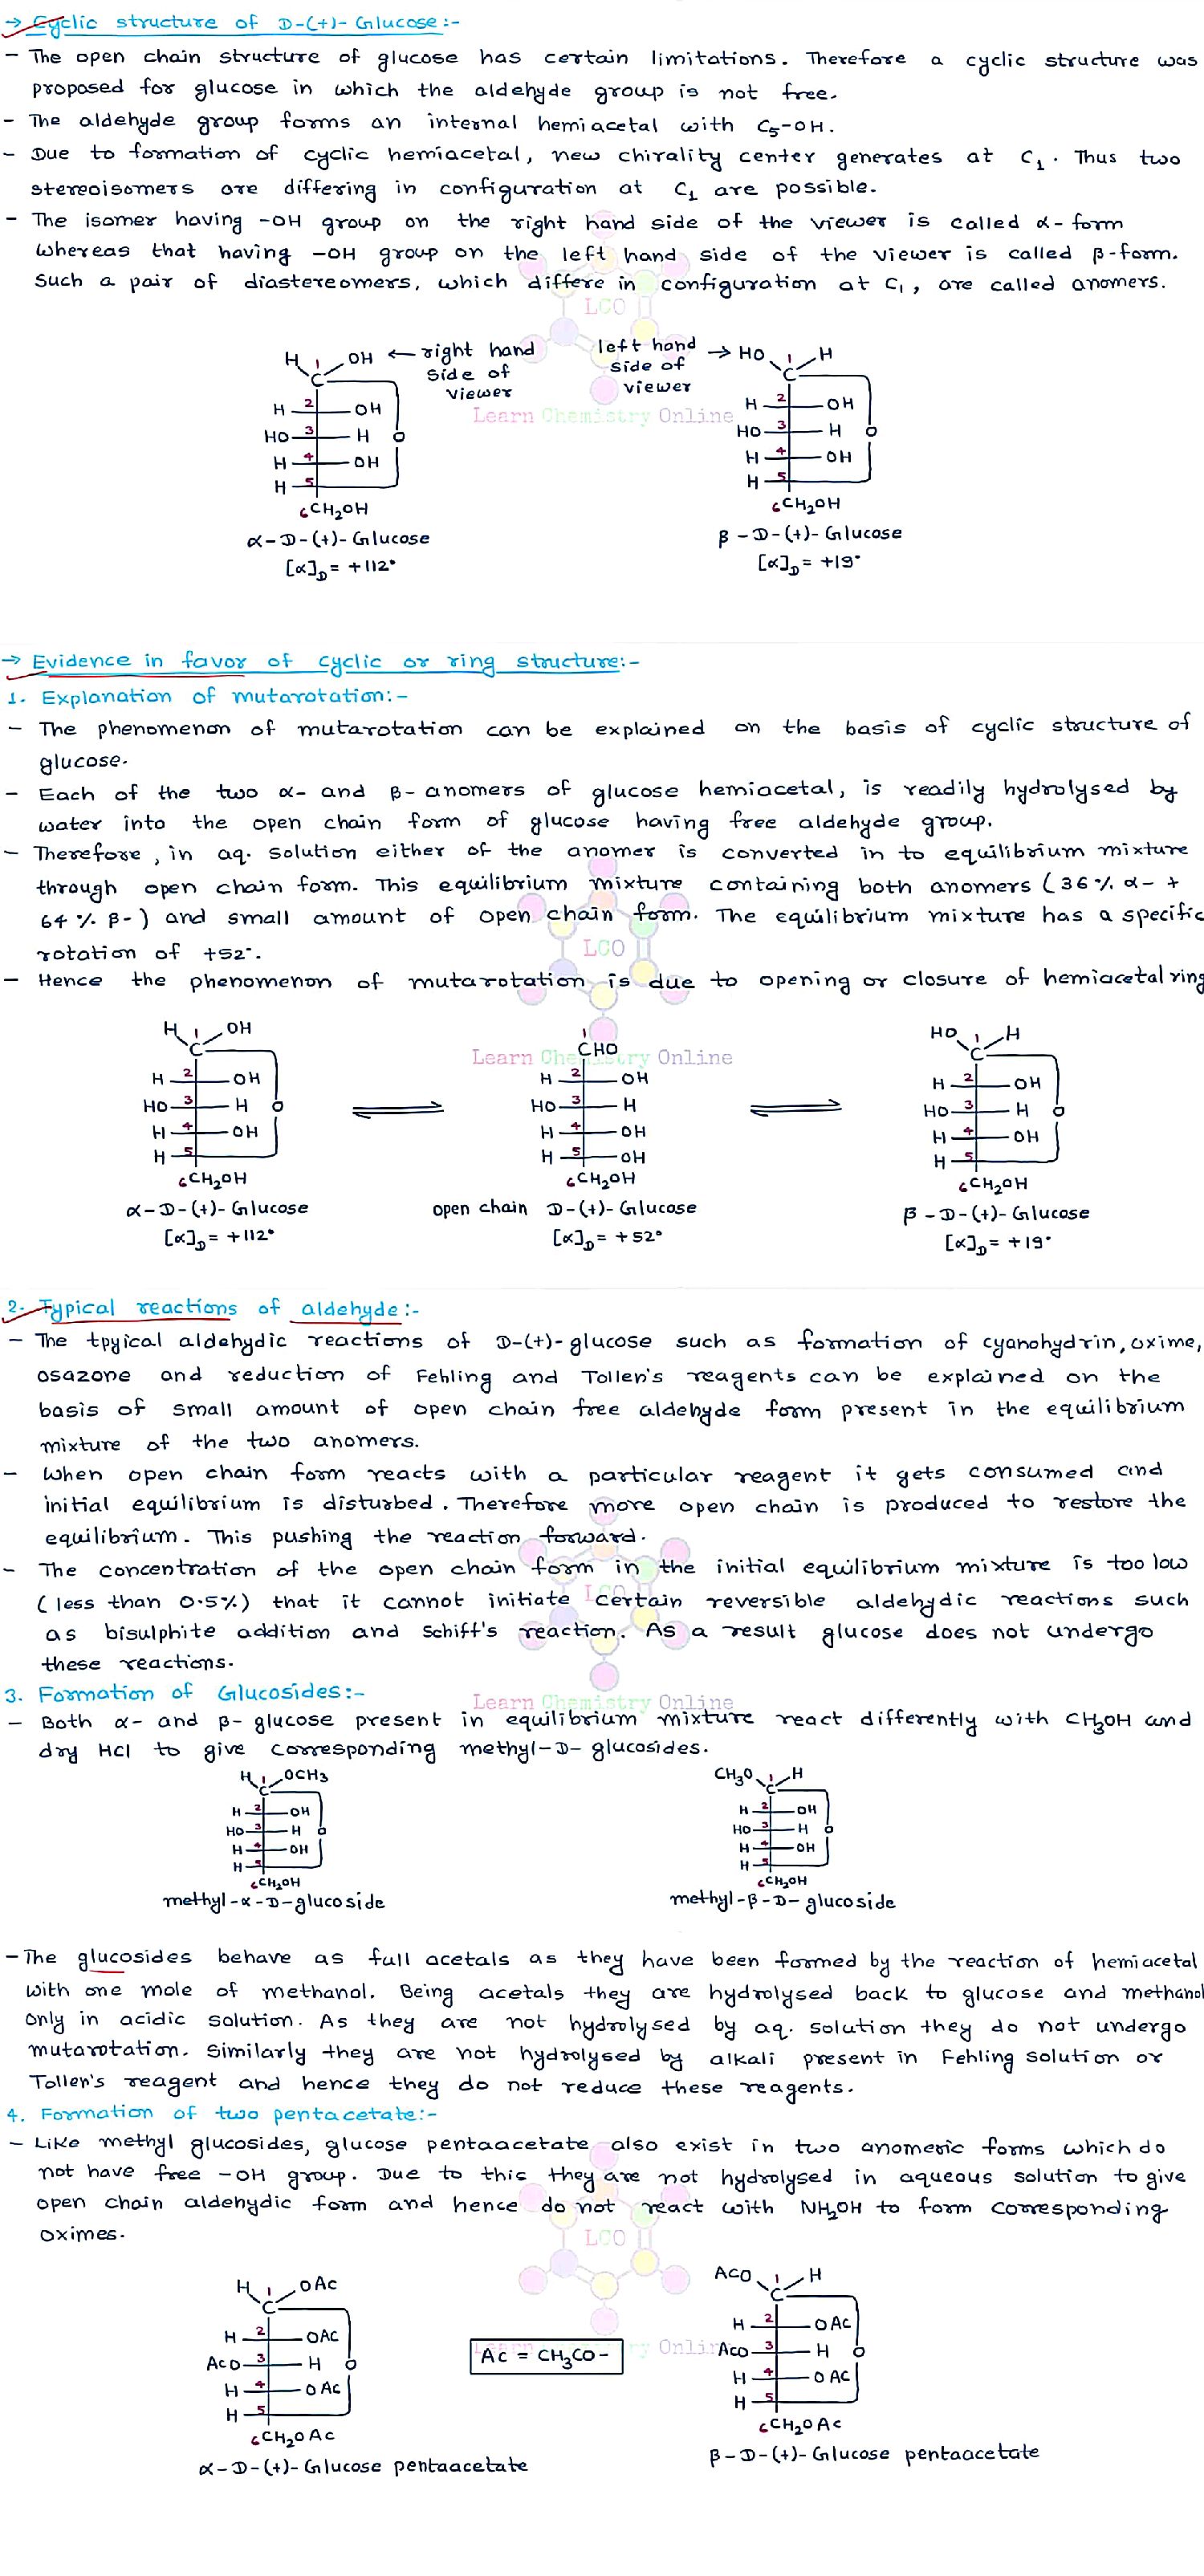 → Cyclic structure of D-(+)- Glucose:-
- The open chain structure of glucose has certain limitations. Therefore a cyclic structure was
proposed for glucose in which the aldehyde group is not free.
- The aldehyde group forms an internal hemiacetal with C₅-OH.
- Due to formation of cyclic hemiacetal, new chirality center generates at C₁. Thus two
stereoisomers are differing in configuration at C₁ are possible.
- The isomer having -OH group on the right hand side of the viewer is called α- form
whereas that having -OH group on the left hand side of the viewer is called β-form.
Such a pair of diastereomers, which differe in configuration at C₁, are called anomers.
LCO
H 1 OH ← right hand side of viewer
C
H 2 OH
HO 3 H O
H 4 OH
H 5
6CH₂OH
α-D-(+)- Glucose
[α]D = +112°
left hand side of viewer → HO 1 H
C
H 2 OH
HO 3 H O
H 4 OH
H 5
6CH₂OH
β-D-(+)- Glucose
[α]D = +19°
Learn Chemistry Online
→ Evidence in favor of cyclic or ring structure:-
1. Explanation of mutarotation:-
- The phenomenon of mutarotation can be explained on the basis of cyclic structure of
glucose.
- Each of the two α- and β- anomers of glucose hemiacetal, is readily hydrolysed by
water into the open chain form of glucose having free aldehyde group.
- Therefore, in aq. solution either of the anomer is converted in to equilibrium mixture
through open chain form. This equilibrium mixture containing both anomers (36% α- +
64% β-) and small amount of open chain form. The equilibrium mixture has a specific
rotation of +52°.
LCO
- Hence the phenomenon of mutarotation is due to opening or closure of hemiacetal ring
H 1 OH
C
H 2 OH
HO 3 H O
H 4 OH
H 5
6CH₂OH
α-D-(+)- Glucose
[α]D = +112°
⇌
1
CHO
H 2 OH
HO 3 H
H 4 OH
H 5 OH
6CH₂OH
open chain D-(+)- Glucose
[α]D = +52°
⇌
HO 1 H
C
H 2 OH
HO 3 H O
H 4 OH
H 5
6CH₂OH
β-D-(+)- Glucose
[α]D = +19°
Learn Chemistry Online
2. Typical reactions of aldehyde:-
- The tpyical aldehydic reactions of D-(+)- glucose such as formation of cyanohydrin, oxime,
osazone and reduction of Fehling and Tollen's reagents can be explained on the
basis of small amount of open chain free aldehyde form present in the equilibrium
mixture of the two anomers.
- When open chain form reacts with a particular reagent it gets consumed and
initial equilibrium is disturbed. Therefore more open chain is produced to restore the
equilibrium. This pushing the reaction forward.
- The concentration of the open chain form in the initial equilibrium mixture is too low
(less than 0.5%) that it cannot initiate certain reversible aldehydic reactions such
LCO
as bisulphite addition and Schiff's reaction. As a result glucose does not undergo
these reactions.
3. Formation of Glucosides:-
Learn Chemistry Online
- Both α- and β- glucose present in equilibrium mixture react differently with CH₃OH and
dry HCl to give corresponding methyl-D- glucosides.
H 1 OCH₃
C
H 2 OH
HO 3 H O
H 4 OH
H 5
6CH₂OH
methyl-α-D-glucoside
CH₃O 1 H
C
H 2 OH
HO 3 H O
H 4 OH
H 5
6CH₂OH
methyl-β-D-glucoside
- The glucosides behave as full acetals as they have been formed by the reaction of hemiacetal
with one mole of methanol. Being acetals they are hydrolysed back to glucose and methanol
only in acidic solution. As they are not hydrolysed by aq. solution they do not undergo
mutarotation. Similarly they are not hydrolysed by alkali present in Fehling solution or
Tollen's reagent and hence they do not reduce these reagents.
4. Formation of two pentacetate:-
- Like methyl glucosides, glucose pentaacetate also exist in two anomeric forms which do
not have free -OH group. Due to this they are not hydrolysed in aqueous solution to give
open chain aldehydic form and hence do not react with NH₂OH to form corresponding
oximes.
LCO
H 1 OAc
C
H 2 OAC
ACO 3 H O
H 4 OAC
H 5
6CH₂OAC
α-D-(+)- Glucose pentaacetate
Ac = CH₃CO-
Learn Chemistry Online
ACO 1 H
C
H 2 OAC
ACO 3 H O
H 4 OAC
H 5
6CH₂OAC
β-D-(+)- Glucose pentaacetate